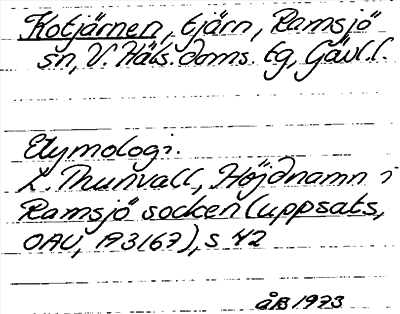 Kotjärnen, tjärn, Ramsjö
sn, V. Häls. doms. tg, Gävl.l.
Etymologi.
L. Thunvall, Höjdnamn i
Ramsjö socken (uppsats,
OAU, 193167), s 42
åB 1973